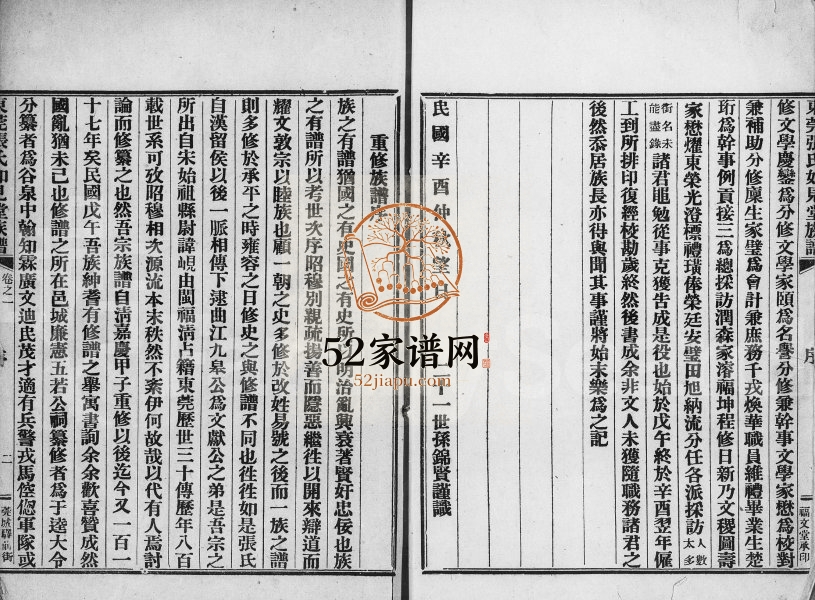 東莞張氏如見堂族譜
序
福文堂承印
修文學慶鑾爲分修文學家頤爲名譽分修兼幹事文學家懋爲校對
兼補助分修廩生家璧爲會計兼庶務千戎煥華職員維禮畢業生楚
珩爲幹事例貢接三爲總採訪潤森家溶福坤程修日新乃文稷圖壽
家懋燿東榮光澄標禮璜俸榮廷安璧田旭納流分任各派採訪人數太多
銜名未能盡錄諸君黽勉從事克獲告成是役也始於戊午終於辛酉翌年僱
工到所排印復經校勘歲終然後書成余非文人未獲隨職務諸君之
後然忝居族長亦得與聞其事謹將始末樂爲之記
民國辛酉仲秋望日
二十一世孫錦賢謹識
重修族譜序
族之有譜猶國之有史國之有史所
明治亂興衰著賢奸忠佞也族
之有譜所以考世次序昭穆別親疏揚善而隱惡繼徃以開來辯道而
耀文敦宗以睦族也顧一朝之史多修於改姓易號之後而一族之譜
則多修於承平之時雍容之日修史之與修譜不同也徃徃如是張氏
自漢留侯以後一脈相傳下逮曲江九皋公爲文獻公之弟是吾宗之
所出自宋始祖縣尉諱峴由閩福淸占籍東莞歷世三十傳歷年八百
載世系可攷昭穆相次源流本末秩然不紊伊何故哉以代有人焉討
論而修纂之也然吾宗族譜自清嘉慶甲子重修以後迄今又一百一
十七年矣民國戊午吾族紳耆有修譜之舉寓書詢余余歡喜贊成然
國亂猶未已也修譜之所在邑城廉憲五若公祠纂修者爲子逵大令
分纂者爲谷泉中翰知霖廣文迪民茂才適有兵警戎馬倥傯軍隊或
東莞張氏如見堂族譜
卷之一
序
二
莞城驛前街
52家谱网
52jiapu.com